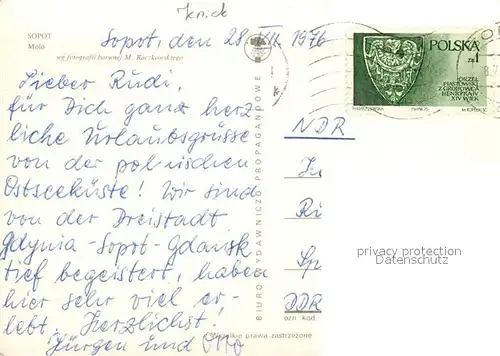 Knick
SOPOT
Molo
wg fotografii barwnej M. Raczkowskiego
Sopot, den 28. VII. 1976
Lieber Rudi,
für Dich ganz herz
liche Urlaubsgrüsse
von der polnischen
Ostseeküste! Wir sind
von der Dreistadt
Gdynia-Sopot-Gdańsk
tief begeistert, haben
hier sehr viel er-
lebt. Herzlichst!
Jürgen und
BIURO WYDAWNICZO PROPAGANDOWE
Wszelkie prawa zastrzeżone
POLSKA
zł 1
TARCZA
PIASTOWSKA
Z GROBOWCA
HENRYKA IV
XIV WIEK
NDR
DDR
ozn kod
privacy protection
Datenschutz